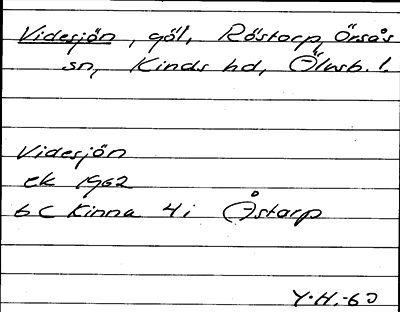 Videsjön, göl, Röstorp, Örsås
sn, Kinds hd, Älvsb. l.
Videsjön
ek 1962
6 C Kinna 4 i Åstarp
Y.H.-60